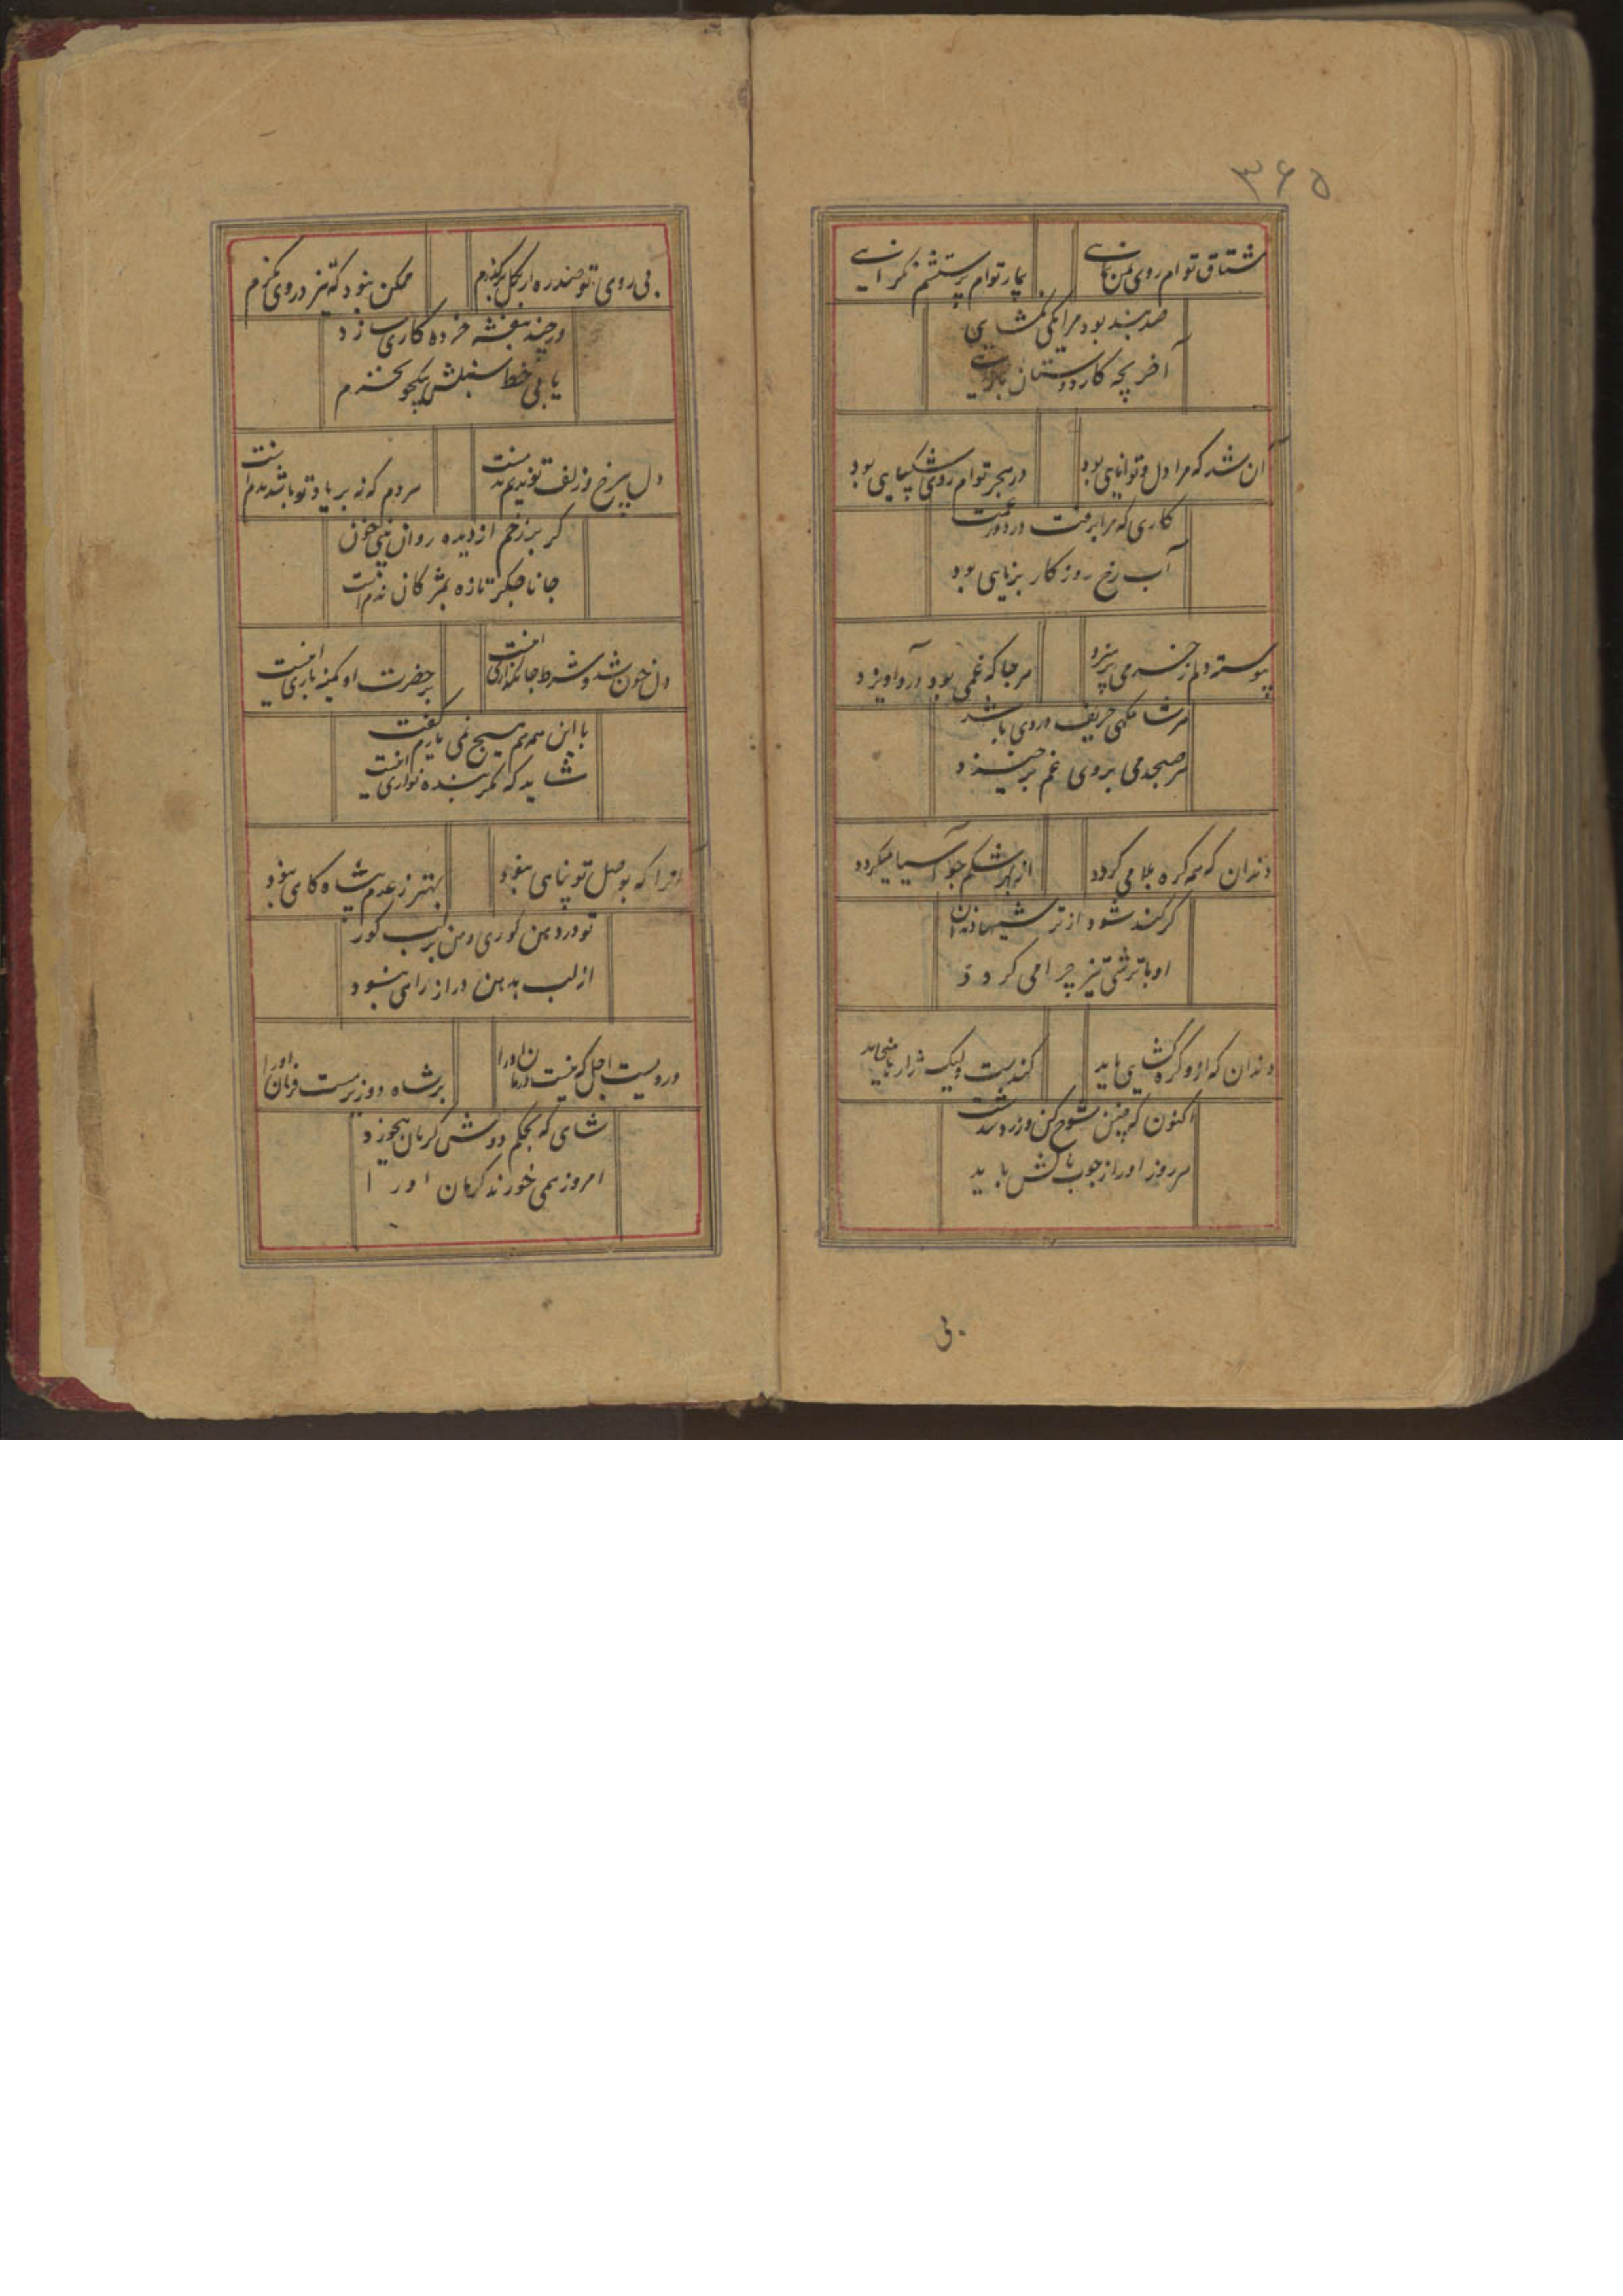 ۳۶۵
مشتاق توام روی بمن بنمای
بیمار توام پرسشم نکرانی
صد بند بود مرا یکی نکشایی
آخر بچه کار دوستان
آن شد که مرا دل و توانایی بود
در هجر توام روی شکیبایی بود
کاری که مرا برفت در دور غمت
آب رخ روزکار برنایی بود
پیوسته دلم ز خرمی پرهیزد
هرجا که غمی بود درو آویزد
هرشامکهی حریف دردی باشد
هر صبحدمی بروی غم برخیزد
دندان که همه کره بلا می کردد
از بهر شکم چو آسیا میکردد
کر کند شود از ترشیها دندان
او با ترشی تیز چرا می کردد
دندان که ازو کره کشایی باید
کندست ولیک ژاژ را میخاید
اکنون که چنین شوخ کن و زرد شدست
هر روز اورا ز چوب بالش باید
بی
بی روی تو صد ره ار بکل برکذرم
ممکن نبود که تیز در وی نکرم
ور چند بنفشه خرده کاری سازد
یا بی خط سنبلش بیکجو نخرم
دل بی رخ و زلف تو ندیم ندمست
هر دم که نه بر یاد تو باشد ندمست
کر بر رخم از دیده روان بینی خون
جانا جکر تازه بمژکان ندمست
دل خون شد و شرط جانکدازی اینست
در حضرت او کمینه بازی اینست
با این همه هم هیچ نمی یارم کفت
شاید که مکر بنده نوازی اینست
آنرا که بوصل تو پناهی نبود
بهتر ز عدم هیچ پناه کاهی نبود
تو در دهن کوری و من بر لب کور
از لب بدهن دراز راهی نبود
دردیست اجل که نیست درمان اورا
بر شاه و وزیرست فرمان اورا
شاهی که بحکم دوش کرمان میخورد
امروز همی خورند کرمان اورا